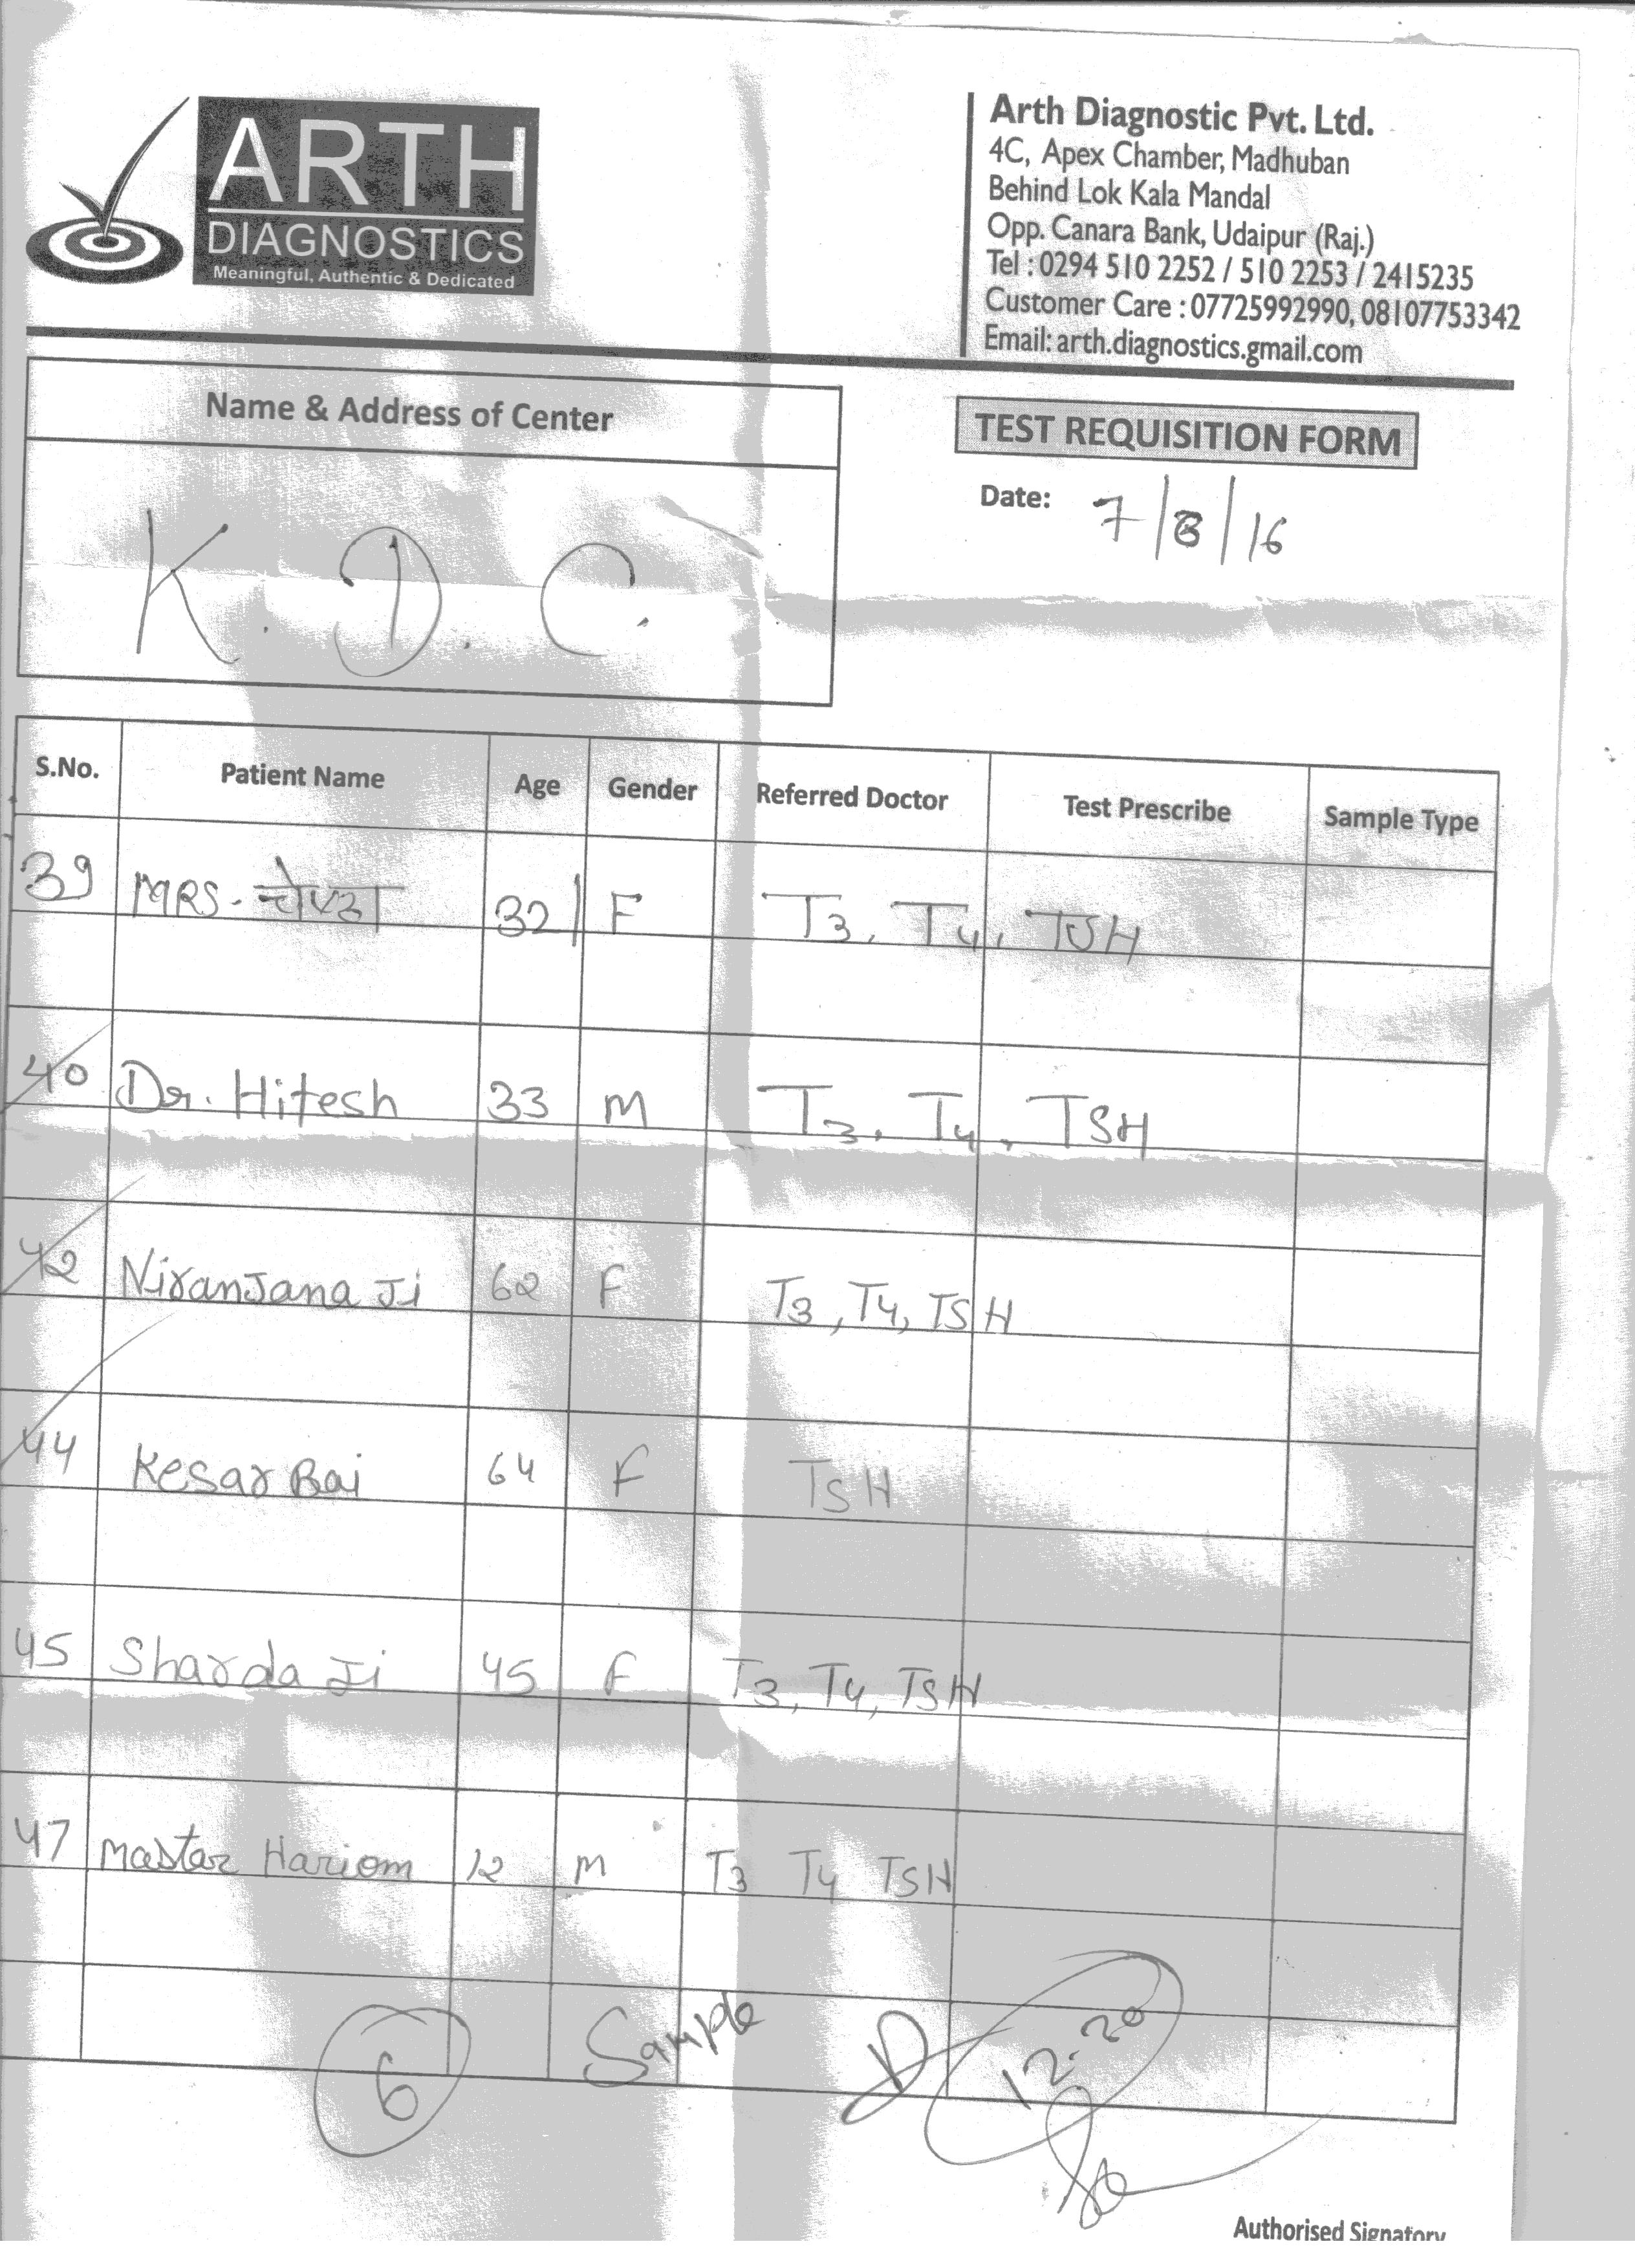 ARTH
DIAGNOSTICS
Meaningful, Authentic & Dedicated
Arth Diagnostic Pvt. Ltd.
4C, Apex Chamber, Madhuban
Behind Lok Kala Mandal
Opp. Canara Bank, Udaipur (Raj.)
Tel : 0294 510 2252 / 510 2253 / 2415235
Customer Care : 07725992990, 08107753342
Email: arth.diagnostics.gmail.com
Name & Address of Center
K. D. C.
TEST REQUISITION FORM
Date: 7/8/16
S.No. Patient Name Age Gender Referred Doctor Test Prescribe Sample Type
39 MRS. 32 F T3, T4, TSH
40 Dr. Hitesh 33 M T3, T4, TSH
42 Niranjana Ji 62 F T3, T4, TSH
44 Kesar Bai 64 F TSH
45 Sharda Ji 45 F T3, T4, TSH
47 Mastar Hariom 12 M T3 T4 TSH
6 Sample 12.20
Authorised Signatory